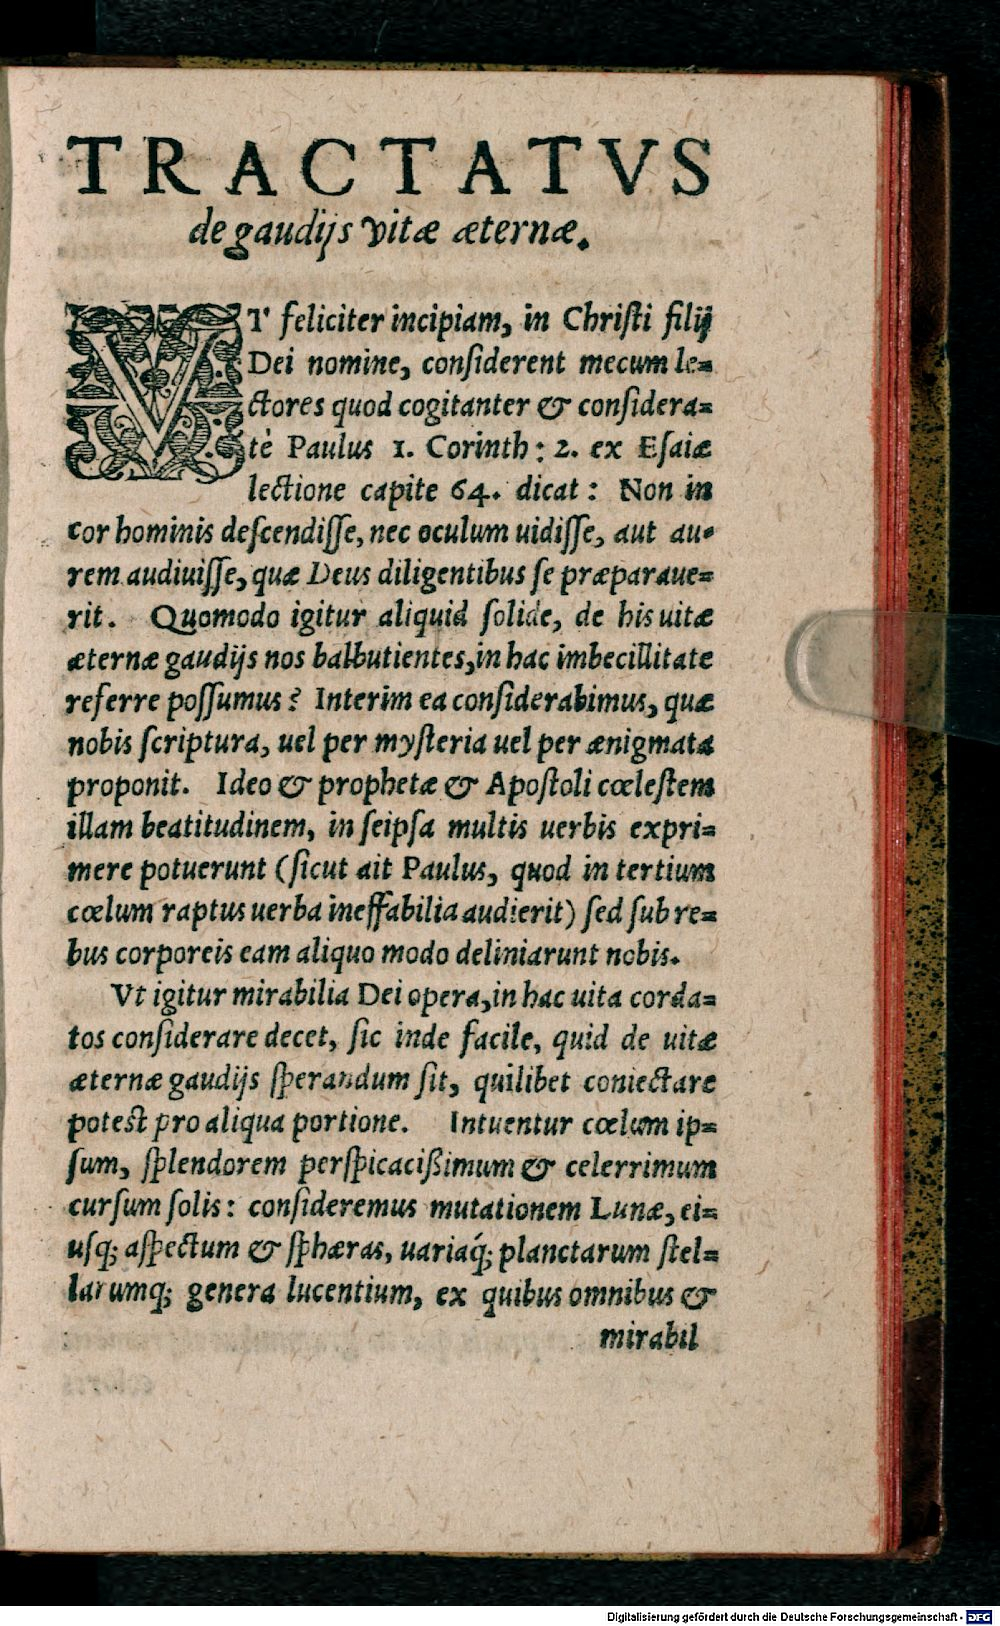 TRACTATVS
de gaudijs vitæ æternæ.
VT feliciter incipiam, in Christi filij
Dei nomine, considerent mecum le=
ctores quod cogitanter & considera=
tè Paulus 1. Corinth: 2. ex Esaiæ
lectione capite 64. dicat: Non in
cor hominis descendisse, nec oculum uidisse, aut au=
rem audiuisse, quæ Deus diligentibus se præparaue=
rit. Quomodo igitur aliquid solide, de his uitæ
æternæ gaudijs nos balbutientes, in hac imbecillitate
referre possumus? Interim ea considerabimus, quæ
nobis scriptura, uel per mysteria uel per ænigmata
proponit. Ideo & prophetæ & Apostoli cœlestem
illam beatitudinem, in seipsa multis uerbis expri=
mere potuerunt (sicut ait Paulus, quod in tertium
cœlum raptus uerba ineffabilia audierit) sed sub re=
bus corporeis eam aliquo modo deliniarunt nobis.
Vt igitur mirabilia Dei opera, in hac uita corda=
tos considerare decet, sic inde facile, quid de uitæ
æternæ gaudijs sperandum sit, quilibet coniectare
potest pro aliqua portione. Intuentur cœlum ip=
sum, splendorem perspicacißimum & celerrimum
cursum solis: consideremus mutationem Lunæ, ei=
usq; aspectum & sphæras, uariaq́; planctarum stel=
larumq; genera lucentium, ex quibus omnibus &
mirabil
Digitalisierung gefördert durch die Deutsche Forschungsgemeinschaft - DFG